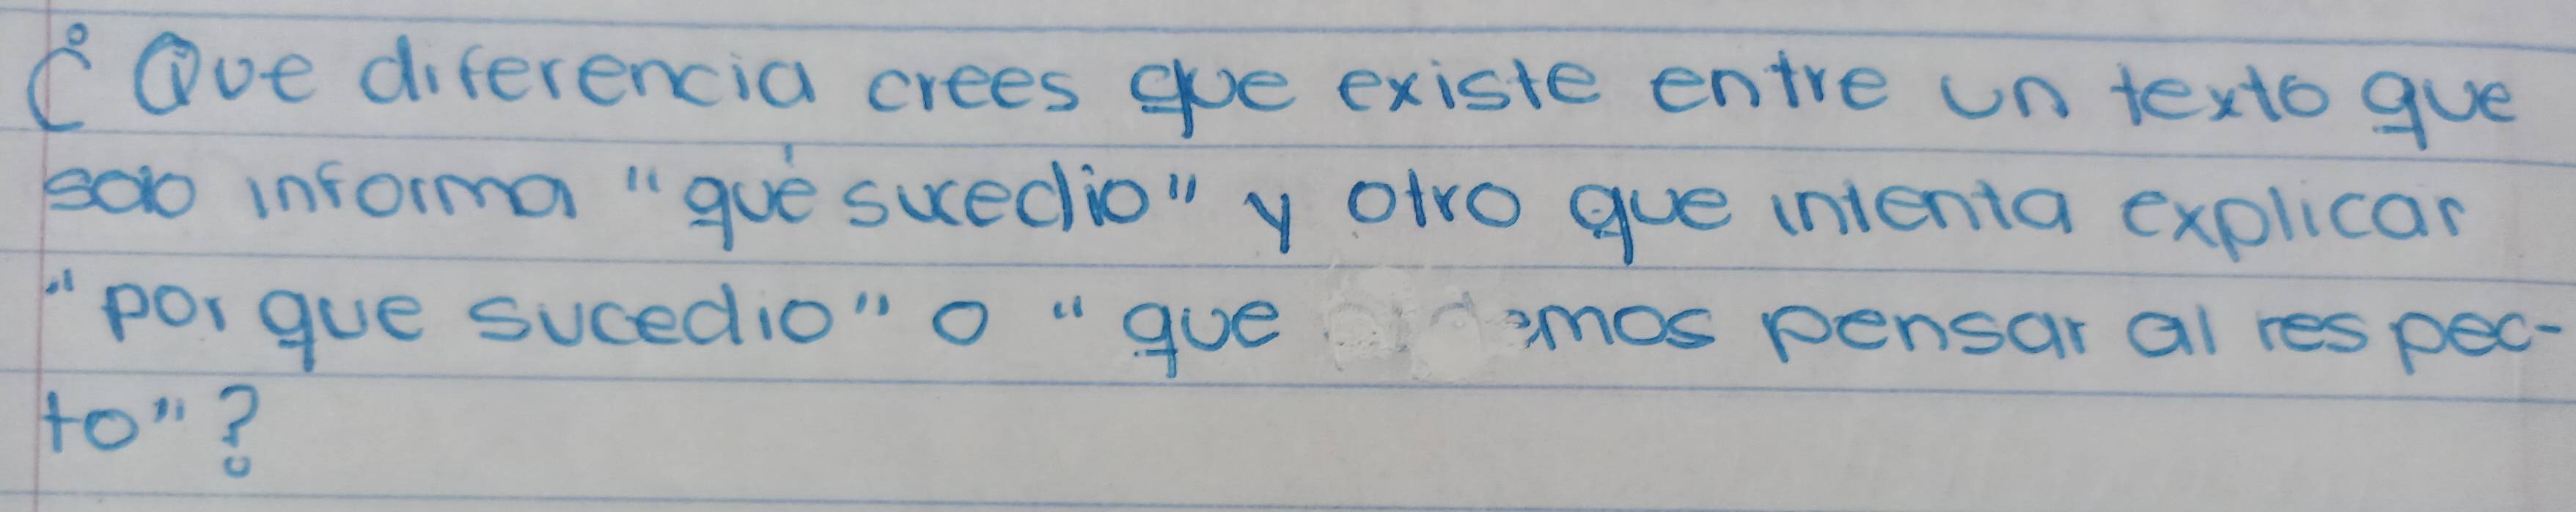 ¿Que diferencia crees que existe entre un texto que
solo informa "qué sucedio" y otro que intenta explicar
"por que sucedio" o "que emos pensar al respec-
to"?